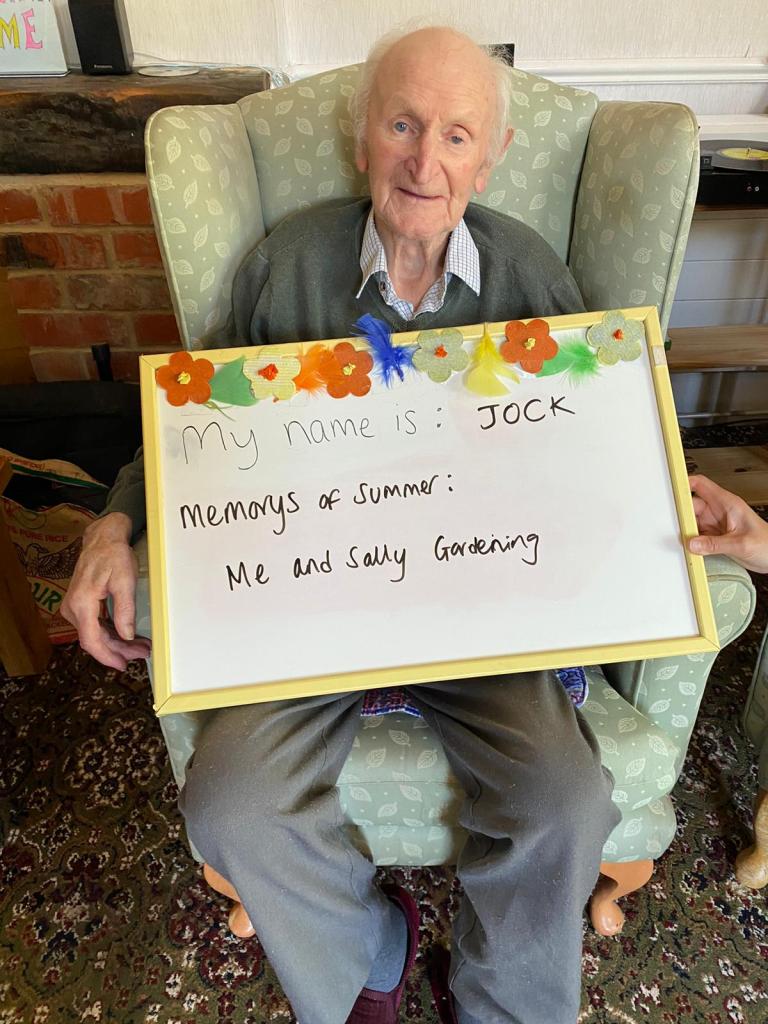 ME
My name is: JOCK
Memorys of Summer:
Me and Sally Gardening
PURE RICE